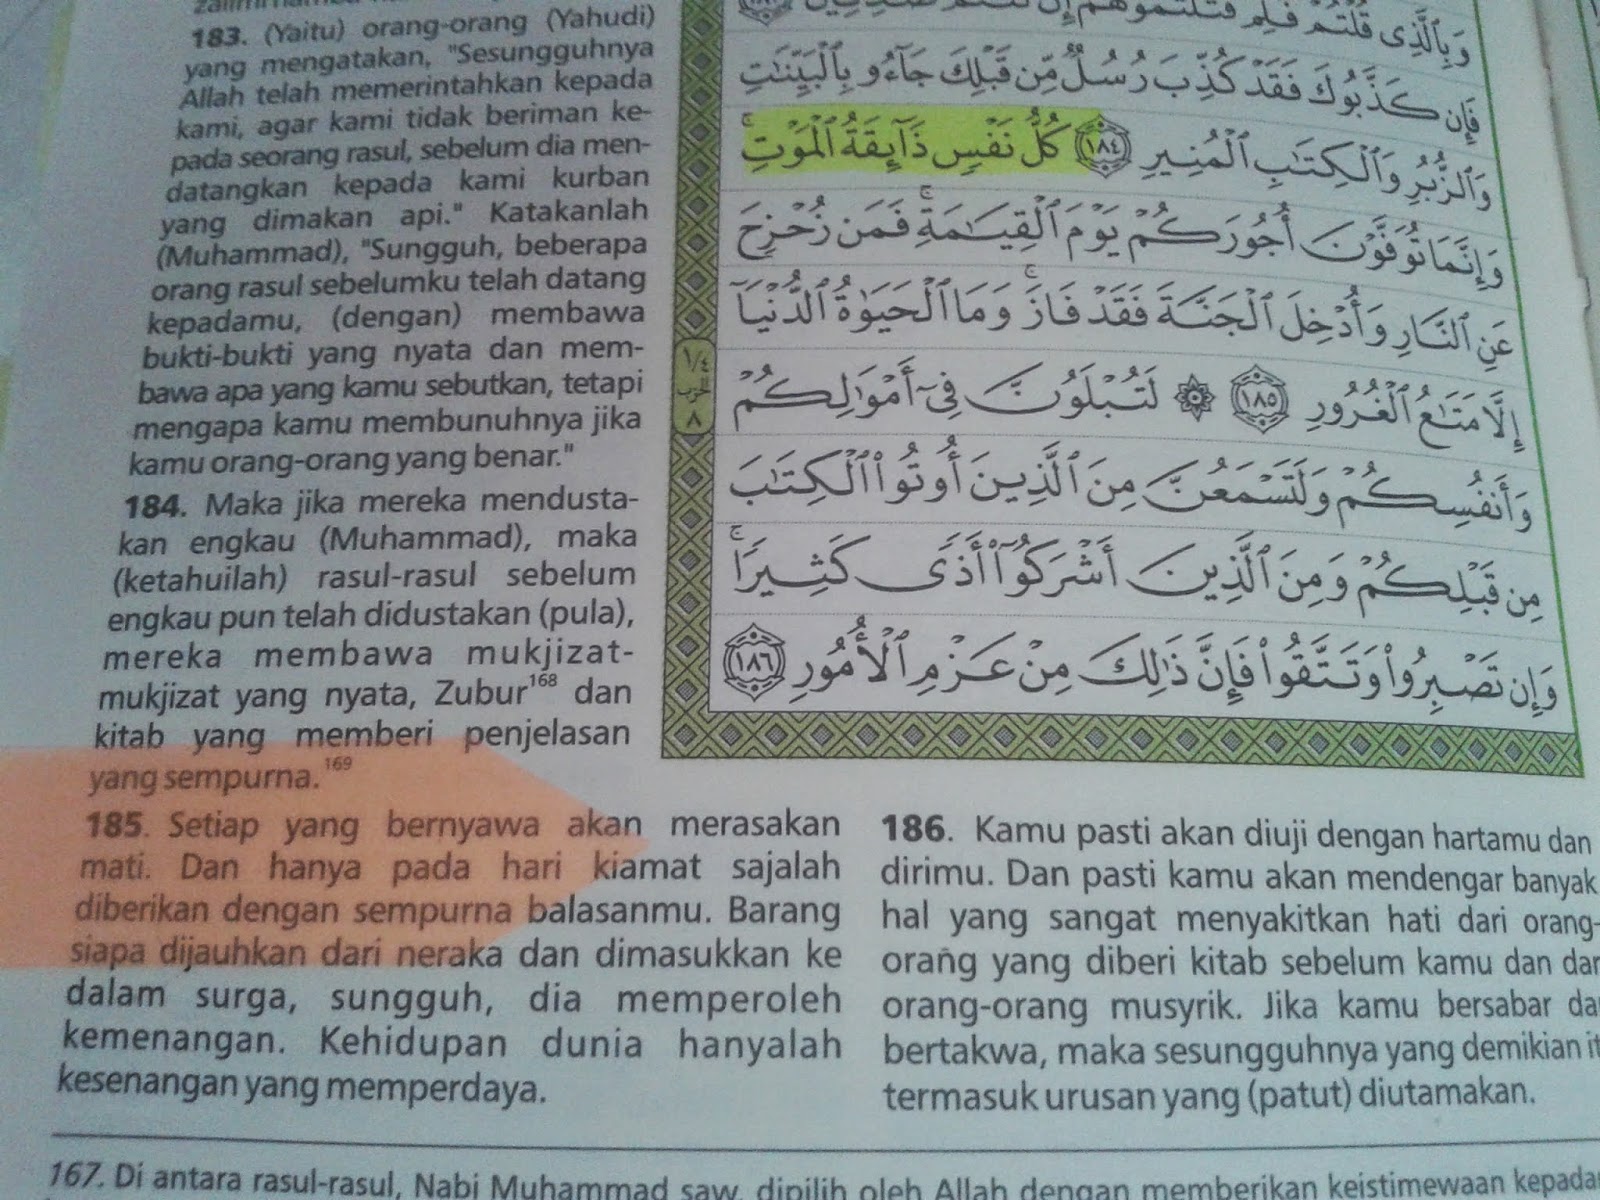 183. (Yaitu) orang-orang (Yahudi)
yang mengatakan, "Sesungguhnya
Allah telah memerintahkan kepada
kami, agar kami tidak beriman ke-
pada seorang rasul, sebelum dia men-
datangkan kepada kami kurban
yang dimakan api." Katakanlah
(Muhammad), "Sungguh, beberapa
orang rasul sebelumku telah datang
kepadamu, (dengan) membawa
bukti-bukti yang nyata dan mem-
bawa apa yang kamu sebutkan, tetapi
mengapa kamu membunuhnya jika
kamu orang-orang yang benar."
184. Maka jika mereka mendusta-
kan engkau (Muhammad), maka
(ketahuilah) rasul-rasul sebelum
engkau pun telah didustakan (pula),
mereka membawa mukjizat-
mukjizat yang nyata, Zubur168 dan
kitab yang memberi penjelasan
yang sempurna.169
185. Setiap yang bernyawa akan merasakan
mati. Dan hanya pada hari kiamat sajalah
diberikan dengan sempurna balasanmu. Barang
siapa dijauhkan dari neraka dan dimasukkan ke
dalam surga, sungguh, dia memperoleh
kemenangan. Kehidupan dunia hanyalah
kesenangan yang memperdaya.
وَبِالَّذِى قُلْتُمْ فَلِمَ قَتَلْتُمُوهُمْ إِن كُنتُمْ صَٰدِقِينَ ١٨٣
فَإِن كَذَّبُوكَ فَقَدْ كُذِّبَ رُسُلٌ مِّن قَبْلِكَ جَآءُو بِالْبَيِّنَٰتِ
وَالزُّبُرِ وَالْكِتَٰبِ الْمُنِيرِ ١٨٤ كُلُّ نَفْسٍ ذَآئِقَةُ الْمَوْتِۗ
وَإِنَّمَا تُوَفَّوْنَ أُجُورَكُمْ يَوْمَ الْقِيَٰمَةِۖ فَمَن زُحْزِحَ
عَنِ النَّارِ وَأُدْخِلَ الْجَنَّةَ فَقَدْ فَازَۗ وَمَا الْحَيَوٰةُ الدُّنْيَآ
إِلَّا مَتَٰعُ الْغُرُورِ ١٨٥ ۞ لَتُبْلَوُنَّ فِىٓ أَمْوَٰلِكُمْ
وَأَنفُسِكُمْ وَلَتَسْمَعُنَّ مِنَ الَّذِينَ أُوتُوا۟ الْكِتَٰبَ
مِن قَبْلِكُمْ وَمِنَ الَّذِينَ أَشْرَكُوٓا۟ أَذًى كَثِيرًاۚ
وَإِن تَصْبِرُوا۟ وَتَتَّقُوا۟ فَإِنَّ ذَٰلِكَ مِنْ عَزْمِ الْأُمُورِ ١٨٦
١/٤
الحزب
٨
186. Kamu pasti akan diuji dengan hartamu dan
dirimu. Dan pasti kamu akan mendengar banyak
hal yang sangat menyakitkan hati dari orang-
orang yang diberi kitab sebelum kamu dan dar
orang-orang musyrik. Jika kamu bersabar da
bertakwa, maka sesungguhnya yang demikian it
termasuk urusan yang (patut) diutamakan.
167. Di antara rasul-rasul, Nabi Muhammad saw. dipilih oleh Allah dengan memberikan keistimewaan kepada